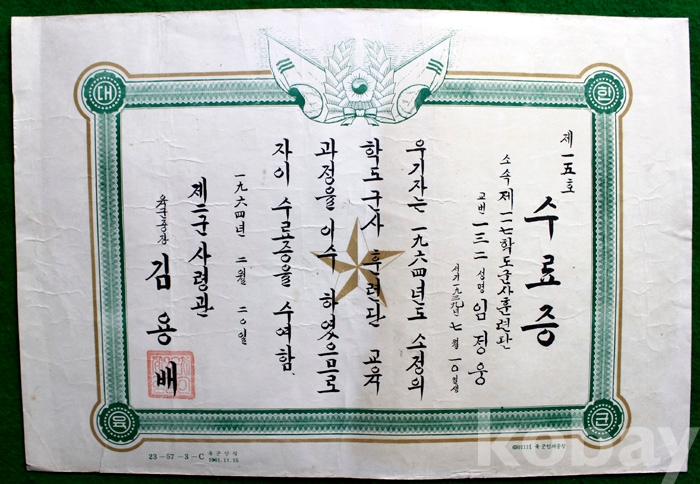 대
한
육
군
제 一五 호
수료증
소속 제一一七학도군사훈련단
교번 一三二 성명 임정웅
서기 一九三九년 七월 一〇일생
우기자는 一九六四년도 소정의
학도군사 훈련단 교육
과정을 이수 하였으므로
자이 수료증을 수여함
一九六四년 二월 二〇일
제二군 사령관
육군중장 김용배
23-57-3-C 육군양식
1961.11.15
kobay